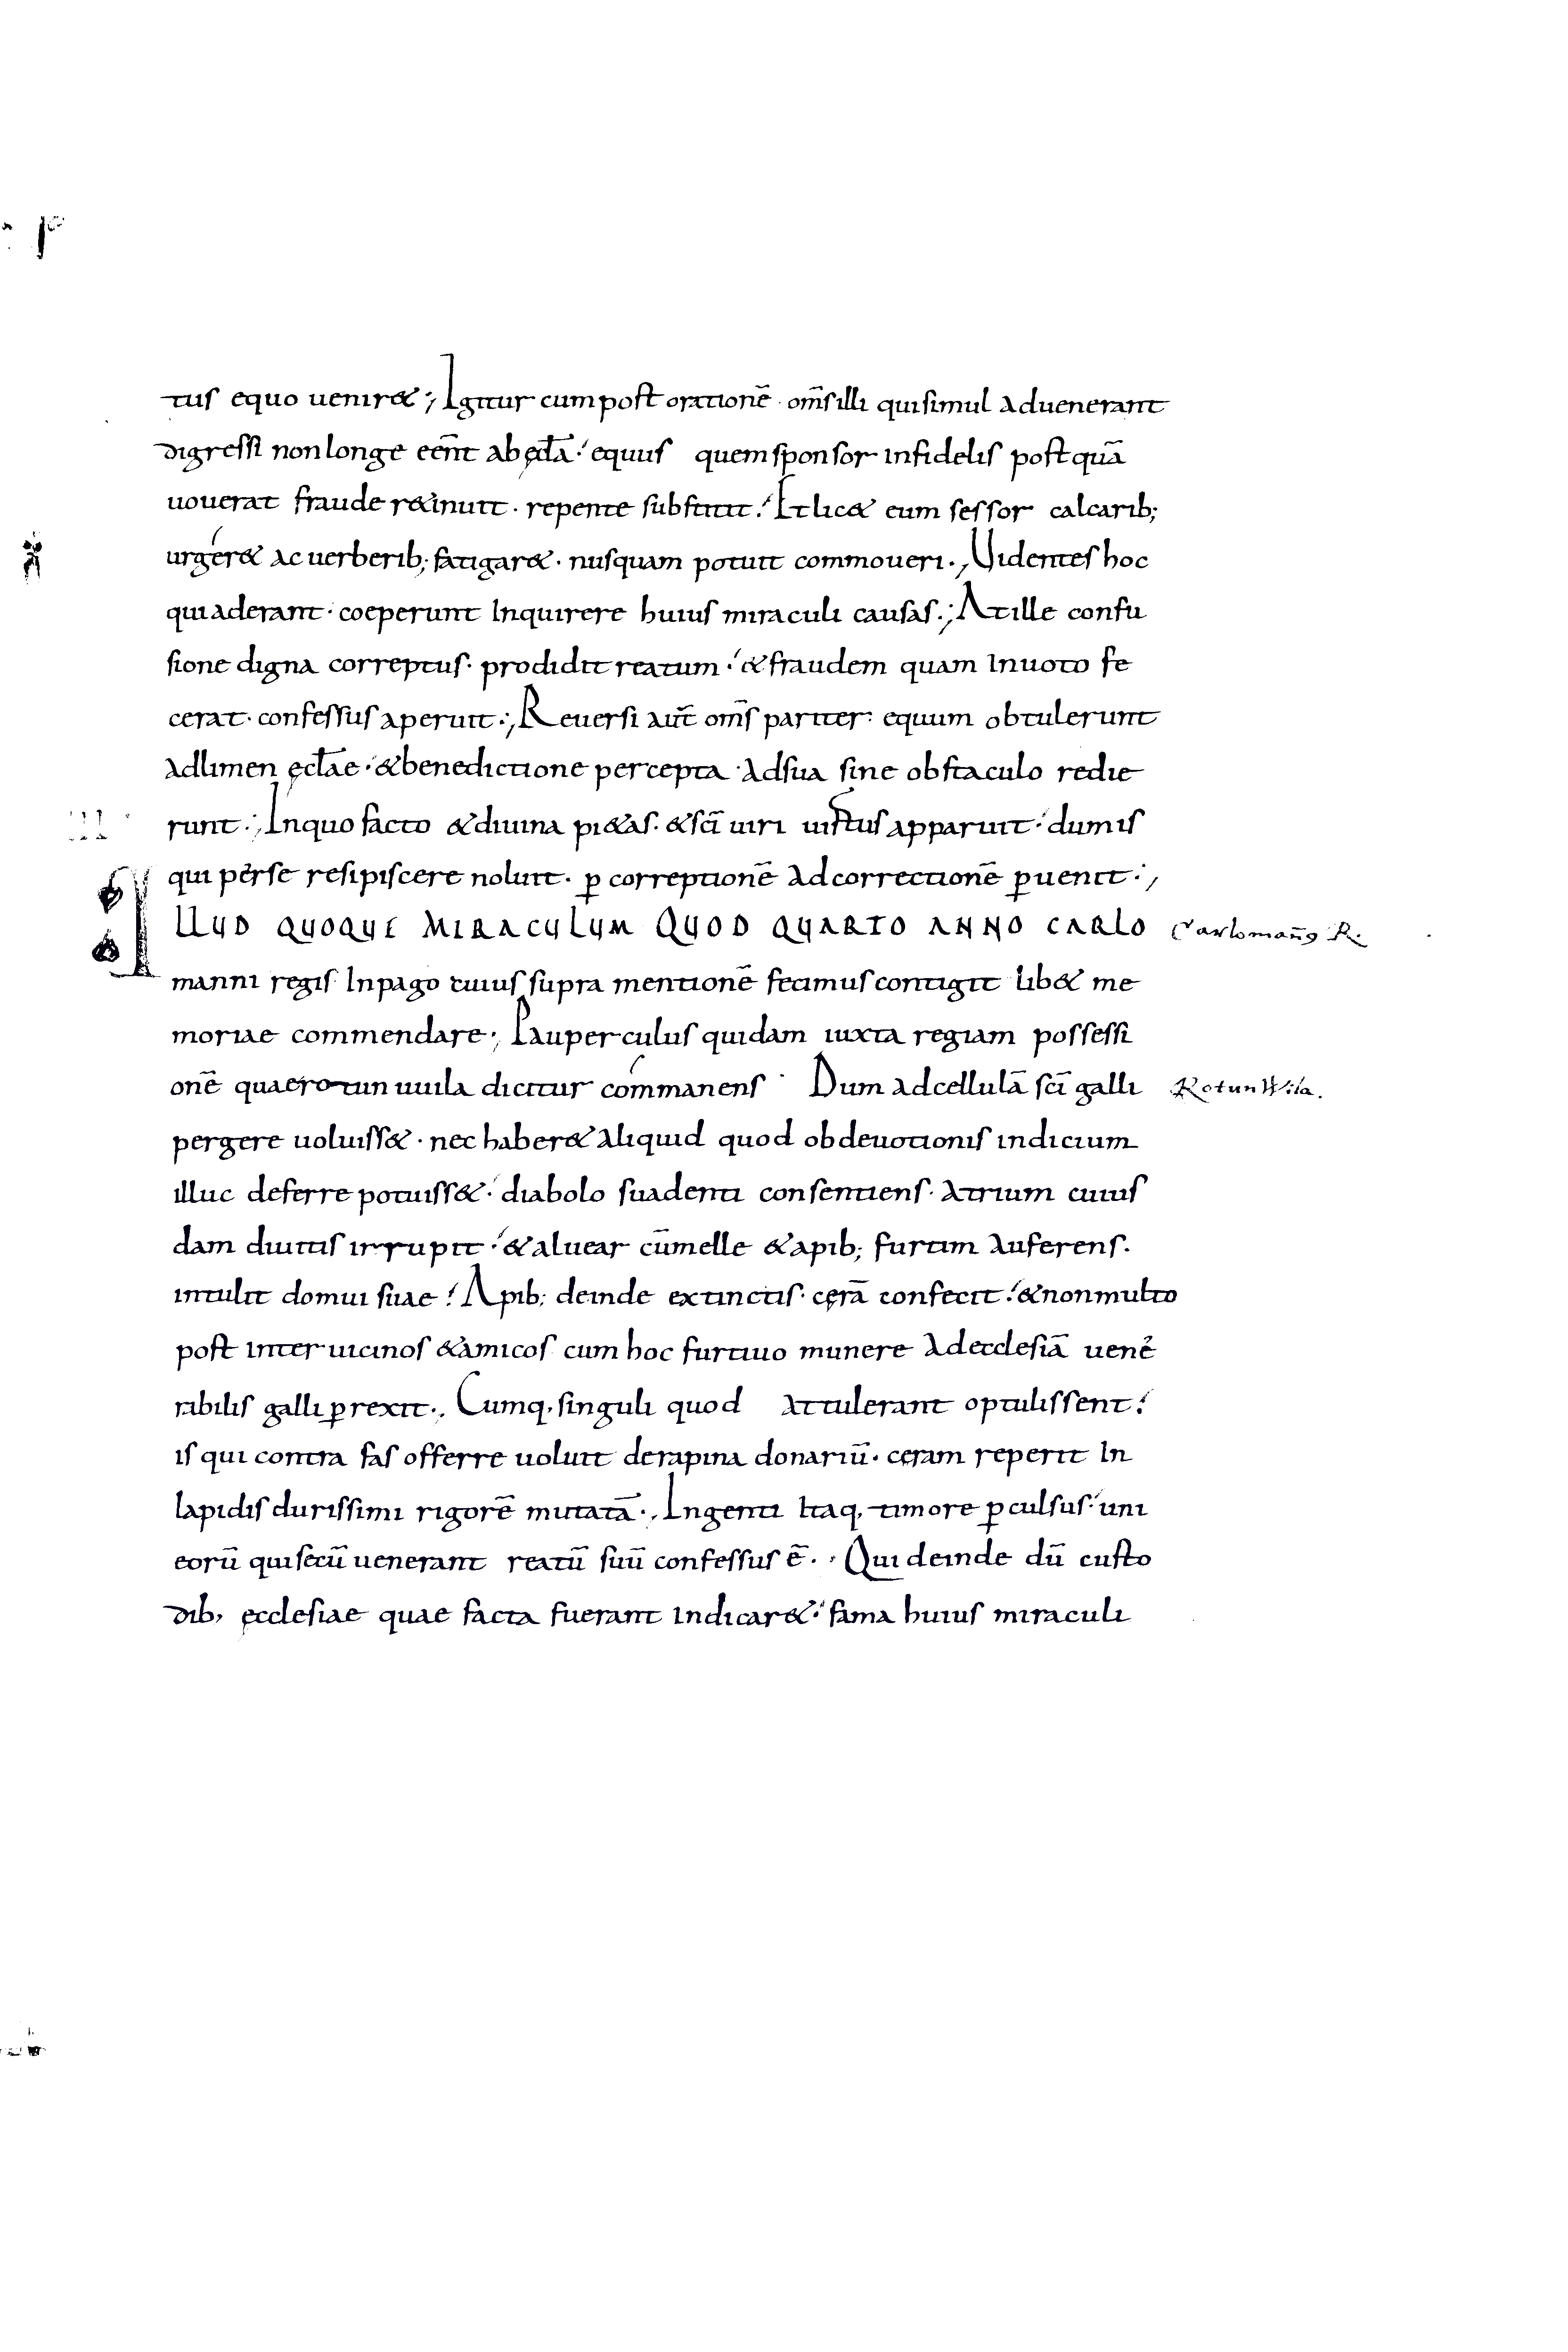 tus equo uenir&;, Igitur cum post orationē · om̄s illi qui simul aduenerant
digressi non longe eēnt ab ęcl̄a·' equus quem sponsor infidelis postquā
uouerat fraude r&inuit · repente substitit!' Et lic& eum sessor calcarib;
urger& ac uerberib; fatigar& · nusquam potuit commoueri ·, Uidentes hoc
qui aderant · coeperunt Inquirere huius miraculi causas ·;, At ille confu
sione digna correptus · prodidit reatum ·' & fraudem quam In uoto fe
cerat · confessus aperuit ·;, Reuersi aut̄ om̄s pariter · equum obtulerunt
ad limen ęcl̄ae ·' & benedictione percepta · ad sua sine obstaculo redie
runt ·;, In quo facto & diuina pi&as · & sc̄i uiri uirtus apparuit ·' dum is
qui per se resipiscere noluit · ꝑ correptionē ad correctionē ꝑuenit ·;,
ILLUD QUOQUE MIRACULUM QUOD QUARTO ANNO CARLO
Carlomañ9 R.
manni regis In pago cuius supra mentionē fecimus contigit lib& me
moriae commendare ·, Pauperculus quidam iuxta regiam possessi
onē quae rotun uuila dicitur commanens · Dum ad cellulā sc̄i galli
RotunWila.
pergere uoluiss& · nec haber& aliquid quod ob deuotionis indicium
illuc deferre potuiss& ·' diabolo suadenti consentiens · atrium cuius
dam diuitis irrupit ·' & aluear cū melle & apib; furtim auferens ·
intulit domui suae !' Apib; deinde extinctis · cęrā confecit !' & non multo
post inter uicinos & amicos cum hoc furtiuo munere ad ecclesiā uene
rabilis galli ꝑrexit ·, Cumq, singuli quod attulerant optulissent !'
is qui contra fas offerre uoluit de rapina donariū · cęram reperit In
lapidis durissimi rigorē mutatā ·, Ingenti Itaq, timore ꝑculsus ·' uni
eorū qui secū uenerant reatū suū confessus ē · , Qui deinde dū custo
dib, ęcclesiae quae facta fuerant indicar& ·' fama huius miraculi